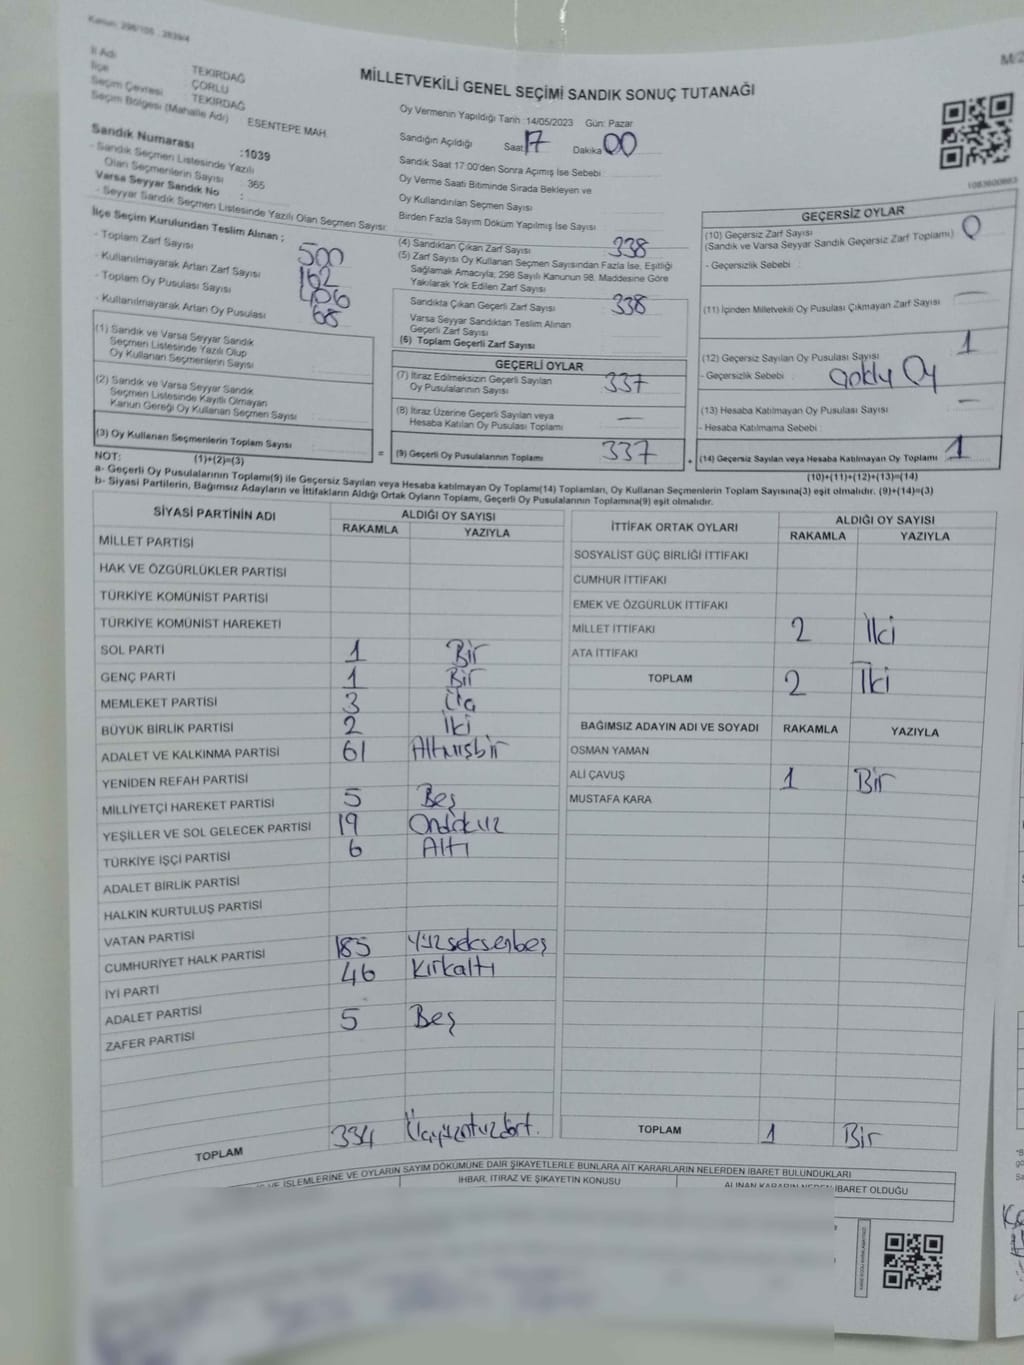 Kanun: 298/105 - 2839/4
İl Adı : TEKİRDAĞ
İlçe : ÇORLU
Seçim Çevresi : TEKİRDAĞ
Seçim Bölgesi (Mahalle Adı) ESENTEPE MAH.
Sandık Numarası :1039
- Sandık Seçmen Listesinde Yazılı
Olan Seçmenlerin Sayısı : 365
Varsa Seyyar Sandık No :
- Seyyar Sandık Seçmen Listesinde Yazılı Olan Seçmen Sayısı:
MİLLETVEKİLİ GENEL SEÇİMİ SANDIK SONUÇ TUTANAĞI
Oy Vermenin Yapıldığı Tarih :14/05/2023 Gün: Pazar
Sandığın Açıldığı Saat 17 Dakika 00
Sandık Saat 17:00'den Sonra Açımış İse Sebebi :
Oy Verme Saati Bitiminde Sırada Bekleyen ve
Oy Kullandırılan Seçmen Sayısı
Birden Fazla Sayım Döküm Yapılmış İse Sayısı :
İlçe Seçim Kurulundan Teslim Alınan ;
- Toplam Zarf Sayısı 500
- Kullanılmayarak Artan Zarf Sayısı 162
- Toplam Oy Pusulası Sayısı 406
- Kullanılmayarak Artan Oy Pusulası 68
(1) Sandık ve Varsa Seyyar Sandık
Seçmen Listesinde Yazılı Olup
Oy Kullanan Seçmenlerin Sayısı :
(2) Sandık ve Varsa Seyyar Sandık
Seçmen Listesinde Kayıtlı Olmayan
Kanun Gereği Oy Kullanan Seçmen Sayısı
(3) Oy Kullanan Seçmenlerin Toplam Sayısı
(1)+(2)=(3)
(4) Sandıktan Çıkan Zarf Sayısı 338
(5) Zarf Sayısı Oy Kullanan Seçmen Sayısından Fazla İse, Eşitliği
Sağlamak Amacıyla, 298 Sayılı Kanunun 98. Maddesine Göre
Yakılarak Yok Edilen Zarf Sayısı
Sandıkta Çıkan Geçerli Zarf Sayısı 338
Varsa Seyyar Sandıktan Teslim Alınan
Geçerli Zarf Sayısı
(6) Toplam Geçerli Zarf Sayısı
GEÇERLİ OYLAR
(7) İtiraz Edilmeksizin Geçerli Sayılan
Oy Pusulalarının Sayısı 337
(8) İtiraz Üzerine Geçerli Sayılan veya
Hesaba Katılan Oy Pusulası Toplamı —
= (9) Geçerli Oy Pusulalarının Toplamı 337
GEÇERSİZ OYLAR
(10) Geçersiz Zarf Sayısı 0
(Sandık ve Varsa Seyyar Sandık Geçersiz Zarf Toplamı)
- Geçersizlik Sebebi :
(11) İçinden Milletvekili Oy Pusulası Çıkmayan Zarf Sayısı —
(12) Geçersiz Sayılan Oy Pusulası Sayısı 1
- Geçersizlik Sebebi :
(13) Hesaba Katılmayan Oy Pusulası Sayısı —
- Hesaba Katılmama Sebebi :
+ (14) Geçersiz Sayılan veya Hesaba Katılmayan Oy Toplamı 1
(10)+(11)+(12)+(13)=(14)
NOT:
a- Geçerli Oy Pusulalarının Toplamı(9) ile Geçersiz Sayılan veya Hesaba katılmayan Oy Toplamı(14) Toplamları, Oy Kullanan Seçmenlerin Toplam Sayısına(3) eşit olmalıdır. (9)+(14)=(3)
b- Siyasi Partilerin, Bağımsız Adayların ve İttifakların Aldığı Ortak Oyların Toplamı, Geçerli Oy Pusulalarının Toplamına(9) eşit olmalıdır.
SİYASİ PARTİNİN ADI ALDIĞI OY SAYISI
RAKAMLA YAZIYLA
MİLLET PARTİSİ
HAK VE ÖZGÜRLÜKLER PARTİSİ
TÜRKİYE KOMÜNİST PARTİSİ
TÜRKİYE KOMÜNİST HAREKETİ
SOL PARTİ 1 Bir
GENÇ PARTİ 1 Bir
MEMLEKET PARTİSİ 3 Üç
BÜYÜK BİRLİK PARTİSİ 2 İki
ADALET VE KALKINMA PARTİSİ 61 Altmışbir
YENİDEN REFAH PARTİSİ
MİLLİYETÇİ HAREKET PARTİSİ 5 Beş
YEŞİLLER VE SOL GELECEK PARTİSİ 19 Ondokuz
TÜRKİYE İŞÇİ PARTİSİ 6 Altı
ADALET BİRLİK PARTİSİ
HALKIN KURTULUŞ PARTİSİ
VATAN PARTİSİ
CUMHURİYET HALK PARTİSİ 185 Yüzseksenbeş
İYİ PARTİ 46 Kırkaltı
ADALET PARTİSİ
ZAFER PARTİSİ 5 Beş
TOPLAM 334 Üçyüzotuzdört.
İTTİFAK ORTAK OYLARI ALDIĞI OY SAYISI
RAKAMLA YAZIYLA
SOSYALİST GÜÇ BİRLİĞİ İTTİFAKI
CUMHUR İTTİFAKI
EMEK VE ÖZGÜRLÜK İTTİFAKI
MİLLET İTTİFAKI 2 İki
ATA İTTİFAKI
TOPLAM 2 İki
BAĞIMSIZ ADAYIN ADI VE SOYADI RAKAMLA YAZIYLA
OSMAN YAMAN
ALİ ÇAVUŞ 1 Bir
MUSTAFA KARA
TOPLAM 1 Bir
İŞLEMLERİNE VE OYLARIN SAYIM DÖKÜMÜNE DAİR ŞİKAYETLERLE BUNLARA AİT KARARLARIN NELERDEN İBARET BULUNDUKLARI
İHBAR, İTİRAZ VE ŞİKAYETİN KONUSU
ALINAN KARARIN NEDEN İBARET OLDUĞU